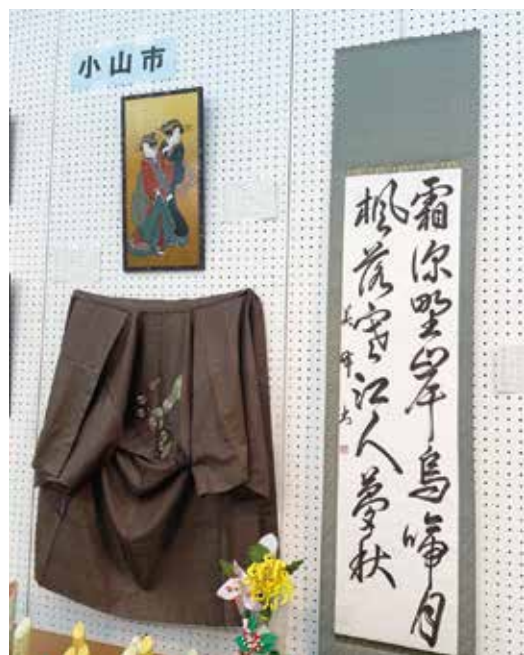 小山市
霜深野岸烏啼月
楓落寒江人夢秋